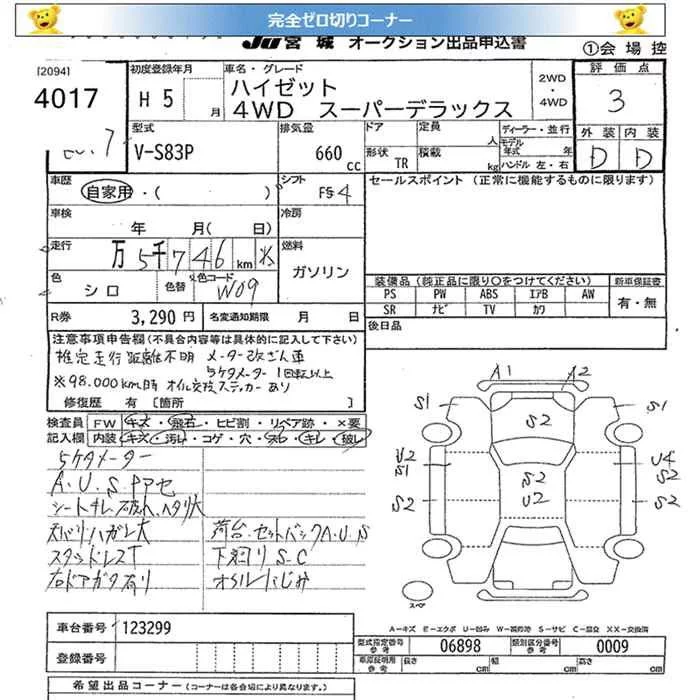 完全ゼロ切りコーナー
JU宮城 オークション出品申込書
①会場控
[2094]
4017
初度登録年月
H 5 月
車名・グレード
ハイゼット
4WD スーパーデラックス
2WD
・
4WD
評価点
3
外装 内装
D D
型式
V-S83P
排気量
660 cc
ドア
形状 TR
定員 人
積載 kg
ディーラー・並行
モデル年式 年
ハンドル 左・右
車歴
自家用・( )
シフト
F5 4
セールスポイント (正常に機能するものに限ります)
車検
年 月( 日)
冷房
走行
万 5千 7 46 km
燃料
ガソリン
色
シロ
色替
色コード
W09
装備品 (純正品に限り○をつけてください)
新車保証書
PS PW ABS エアB AW
有・無
SR ナビ TV カワ
R券 3,290 円
名変通知期限 月 日
後日品
注意事項申告欄(不具合内容等は具体的に記入して下さい)
推定走行距離不明 メーター改ざん車
5ケタメーター 1回転以上
※98.000km時 オイル交換ステッカーあり
修復歴 有 [箇所 ]
検査員 FW キズ・飛石・ヒビ割・リペア跡・×要
記入欄 内装 キズ・汚レ・コゲ・穴・スレ・キレ・破レ
5ケタメーター
A.U.S
シートキレ 破れ、ヘタリ大
ハガレ大
荷台.セットバックA.U.S
スタッドレスT
下廻りS-C
右ドアガタ有り
オイルにじみ
A1 A2
S1 S2 S1
U2
S1
S2
U2
U4
S2
S2 S2
スペア
A-キズ E-エクボ U-凹ミ W-補修跡 S-サビ C-腐食 XX-交換済
車台番号 123299
登録番号
型式指定番号
参考
06898
類別区分番号
参考
0009
車庫証明用
参考
長さ cm 幅 cm 高さ cm
希望出品コーナー (コーナーは各会場により異なります。)